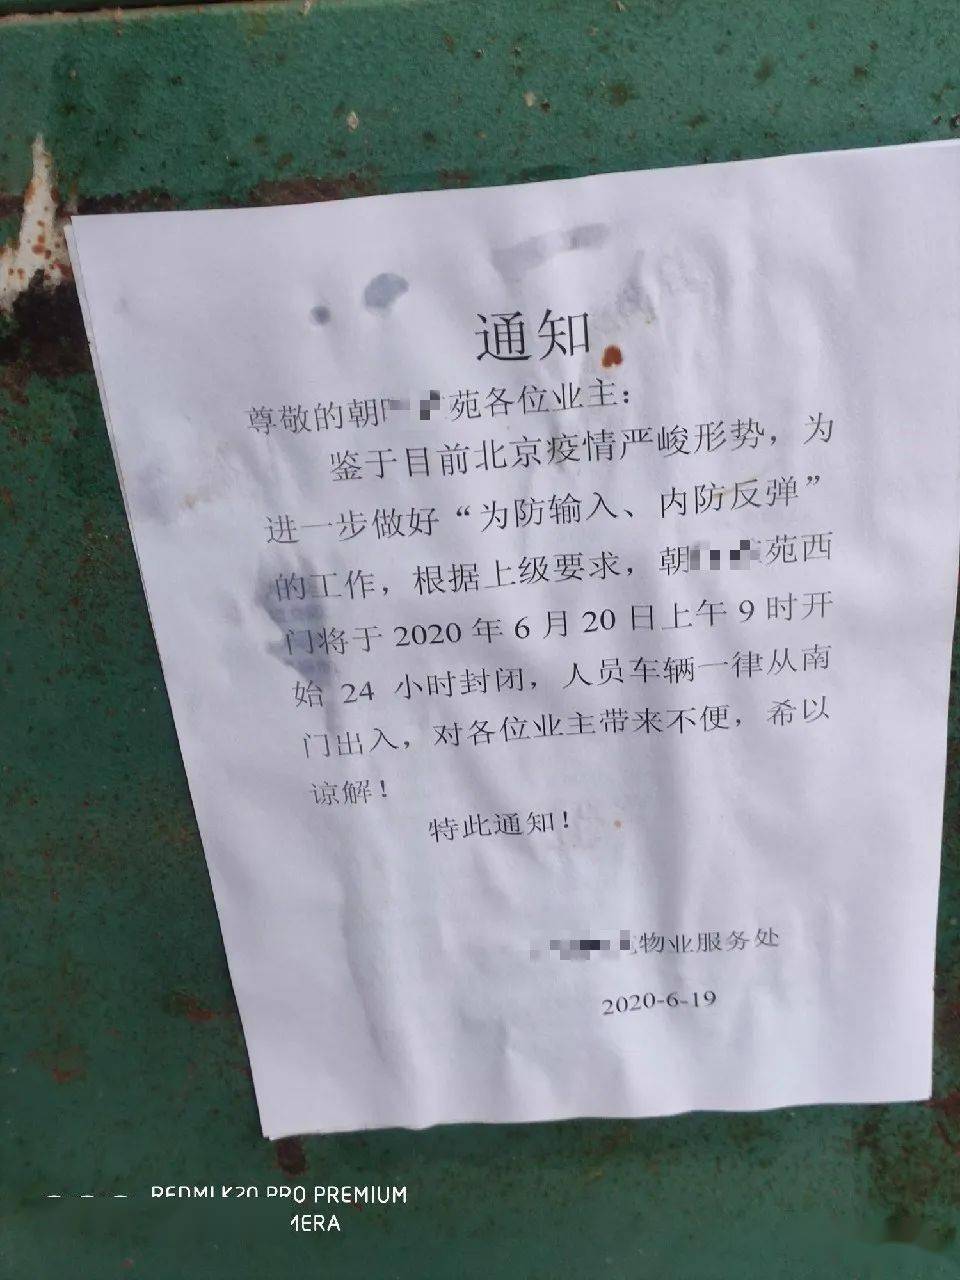 通知
尊敬的朝 苑各位业主：
鉴于目前北京疫情严峻形势，为
进一步做好“为防输入、内防反弹”
的工作，根据上级要求，朝 苑西
门将于 2020 年 6 月 20 日上午 9 时开
始 24 小时封闭，人员车辆一律从南
门出入，对各位业主带来不便，希以
谅解！
特此通知！
物业服务处
2020-6-19
REDMI K20 PRO PREMIUM
MERA